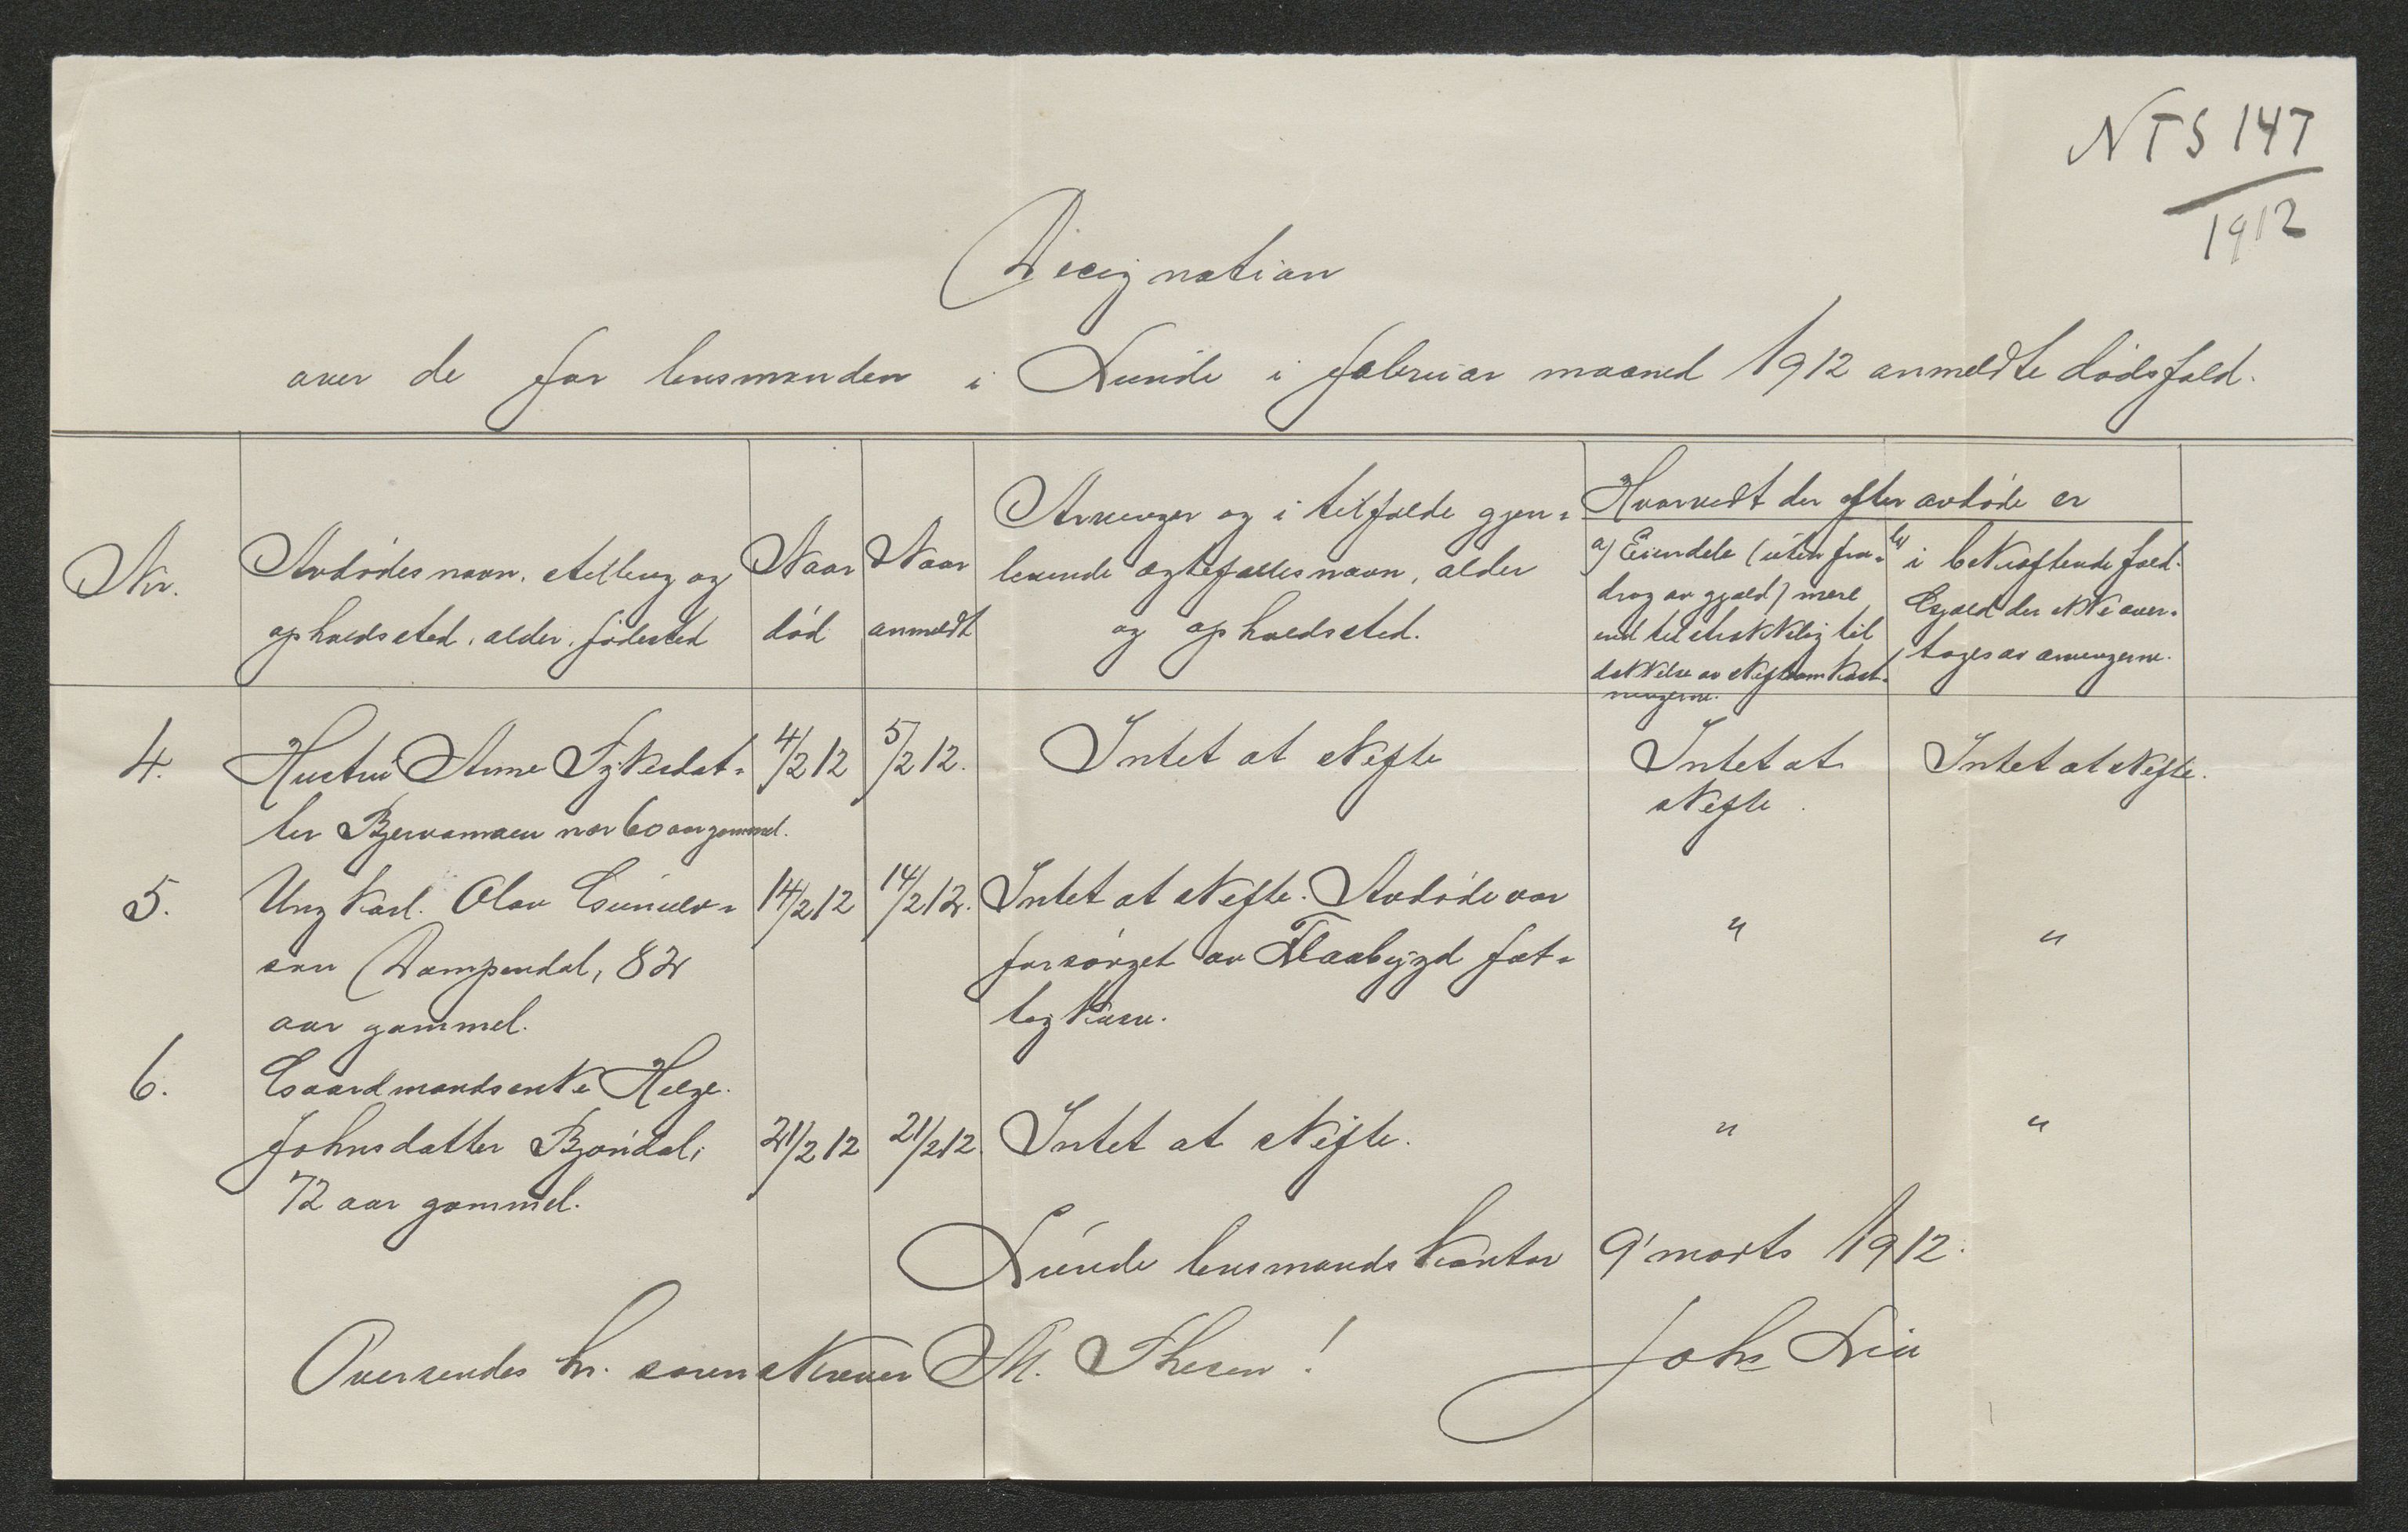 NTS 147
1912
Designation
over de for lensmanden i Lunde i februar maaned 1912 anmeldte dødsfald.
Nr.
Avdødes navn, stilling og
opholdssted, alder, fødested
Naar
død
Naar
anmeldt
Arvinger og i tilfælde gjen-
levende ægtefælles navn, alder
og opholdssted.
Hvorvidt der efter avdøde er
a) Eiendele (uten fra-
drag av gjæld) mere
end tilstrækkelig til
dækkelse av skifteomkost-
ningerne.
b) i bekræftende fald.
Gjæld der ikke over-
tages av arvingerne.
4.
Hustru Anne Sykesdat-
ter Bjervamoen nær 60 aar gammel.
4/2 12
5/2 12.
Intet at skifte
Intet at
skifte.
Intet at skifte.
5.
Ungkarl. Olav Gunulv-
søn Dampendal, 82
aar gammel.
14/2 12
14/2 12.
Intet at skifte. Avdøde var
forsørget av Flaabygd fat-
tigkasse.
"
"
6.
Gaardmandsenke Helge
Johnsdatter Bjøndal,
72 aar gammel.
21/2 12
21/2 12
Intet at skifte.
"
"
Lunde lensmandskontor 9' marts 1912.
Oversendes hr. sorenskriver M. Thesen!
Johs Lia